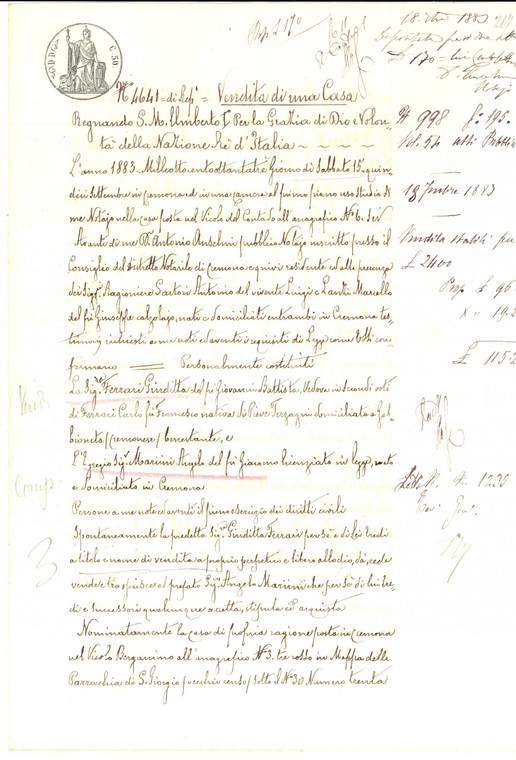 C. 50
N° 4641 = di Rep° = Vendita di una Casa
Regnando S. M. Umberto I° Per la Grazia di Dio e Volon
tà della Nazione Rè d'Italia
L'anno 1883 Milleottocentottantatre Giorno di Sabbato 15 quin
dici Settembre in Cremona ed in una camera al primo piano uso Studio di
me Notajo nella casa posta nel Vicolo del Contado all'anagrafico N° 6. Sei
Avanti di me Dr Antonio Anselmi pubblico Notajo inscritto presso il
Consiglio del Distretto Notarile di Cremona e quivi residente ed alla presenza
dei Sigri Ragioniere Sartori Antonio del vivente Luigi e Marcello
del fu Giuseppe calzolajo, nati e domiciliati entrambi in Cremona tes-
timonj richiesti a me noti ed aventi i requisiti di Legge come Essi con
fermano = Personalmente costituiti
La Sigra Ferrari Giuditta del fu Giovanni Battista, Vedova in secondi voti
di Ferrari Carlo fu Francesco nativa di Pieve Terzagni domiciliata a
(cremonese) benestante, e
L'Egregio Sigr Mariini Angelo del fu Giacomo licenziato in legge, nato
e domiciliato in Cremona
Persone a me note ed aventi il pieno esercizio dei diritti civili
Spontaneamente la predetta Sigra Giuditta Ferrari per sè e di Lei Eredi
a titolo e nome di vendita a proprio perpetuo e libero allodio, dà, cede
vende e trasferisce al prefato Sigr Angelo Mariini che per sè di lui ere
di e Successori qualunque accetta, stipula ed acquista
Nominatamente la casa di propria ragione posta in Cremona
nel Vicolo Bergamino all'anagrafico N° 3. tre rosso in Mappa della
Parrocchia di S. Giorgio (vecchio censo) sotto il N° 30 Numero trenta
1883
£ 170 =
N° 998 f° 195.
Vol. 54 atti Pubblici
18 7mbre 1883
Vendita stabili per
£ 2400
Prop £ 96
19.2
£ 115.2
3